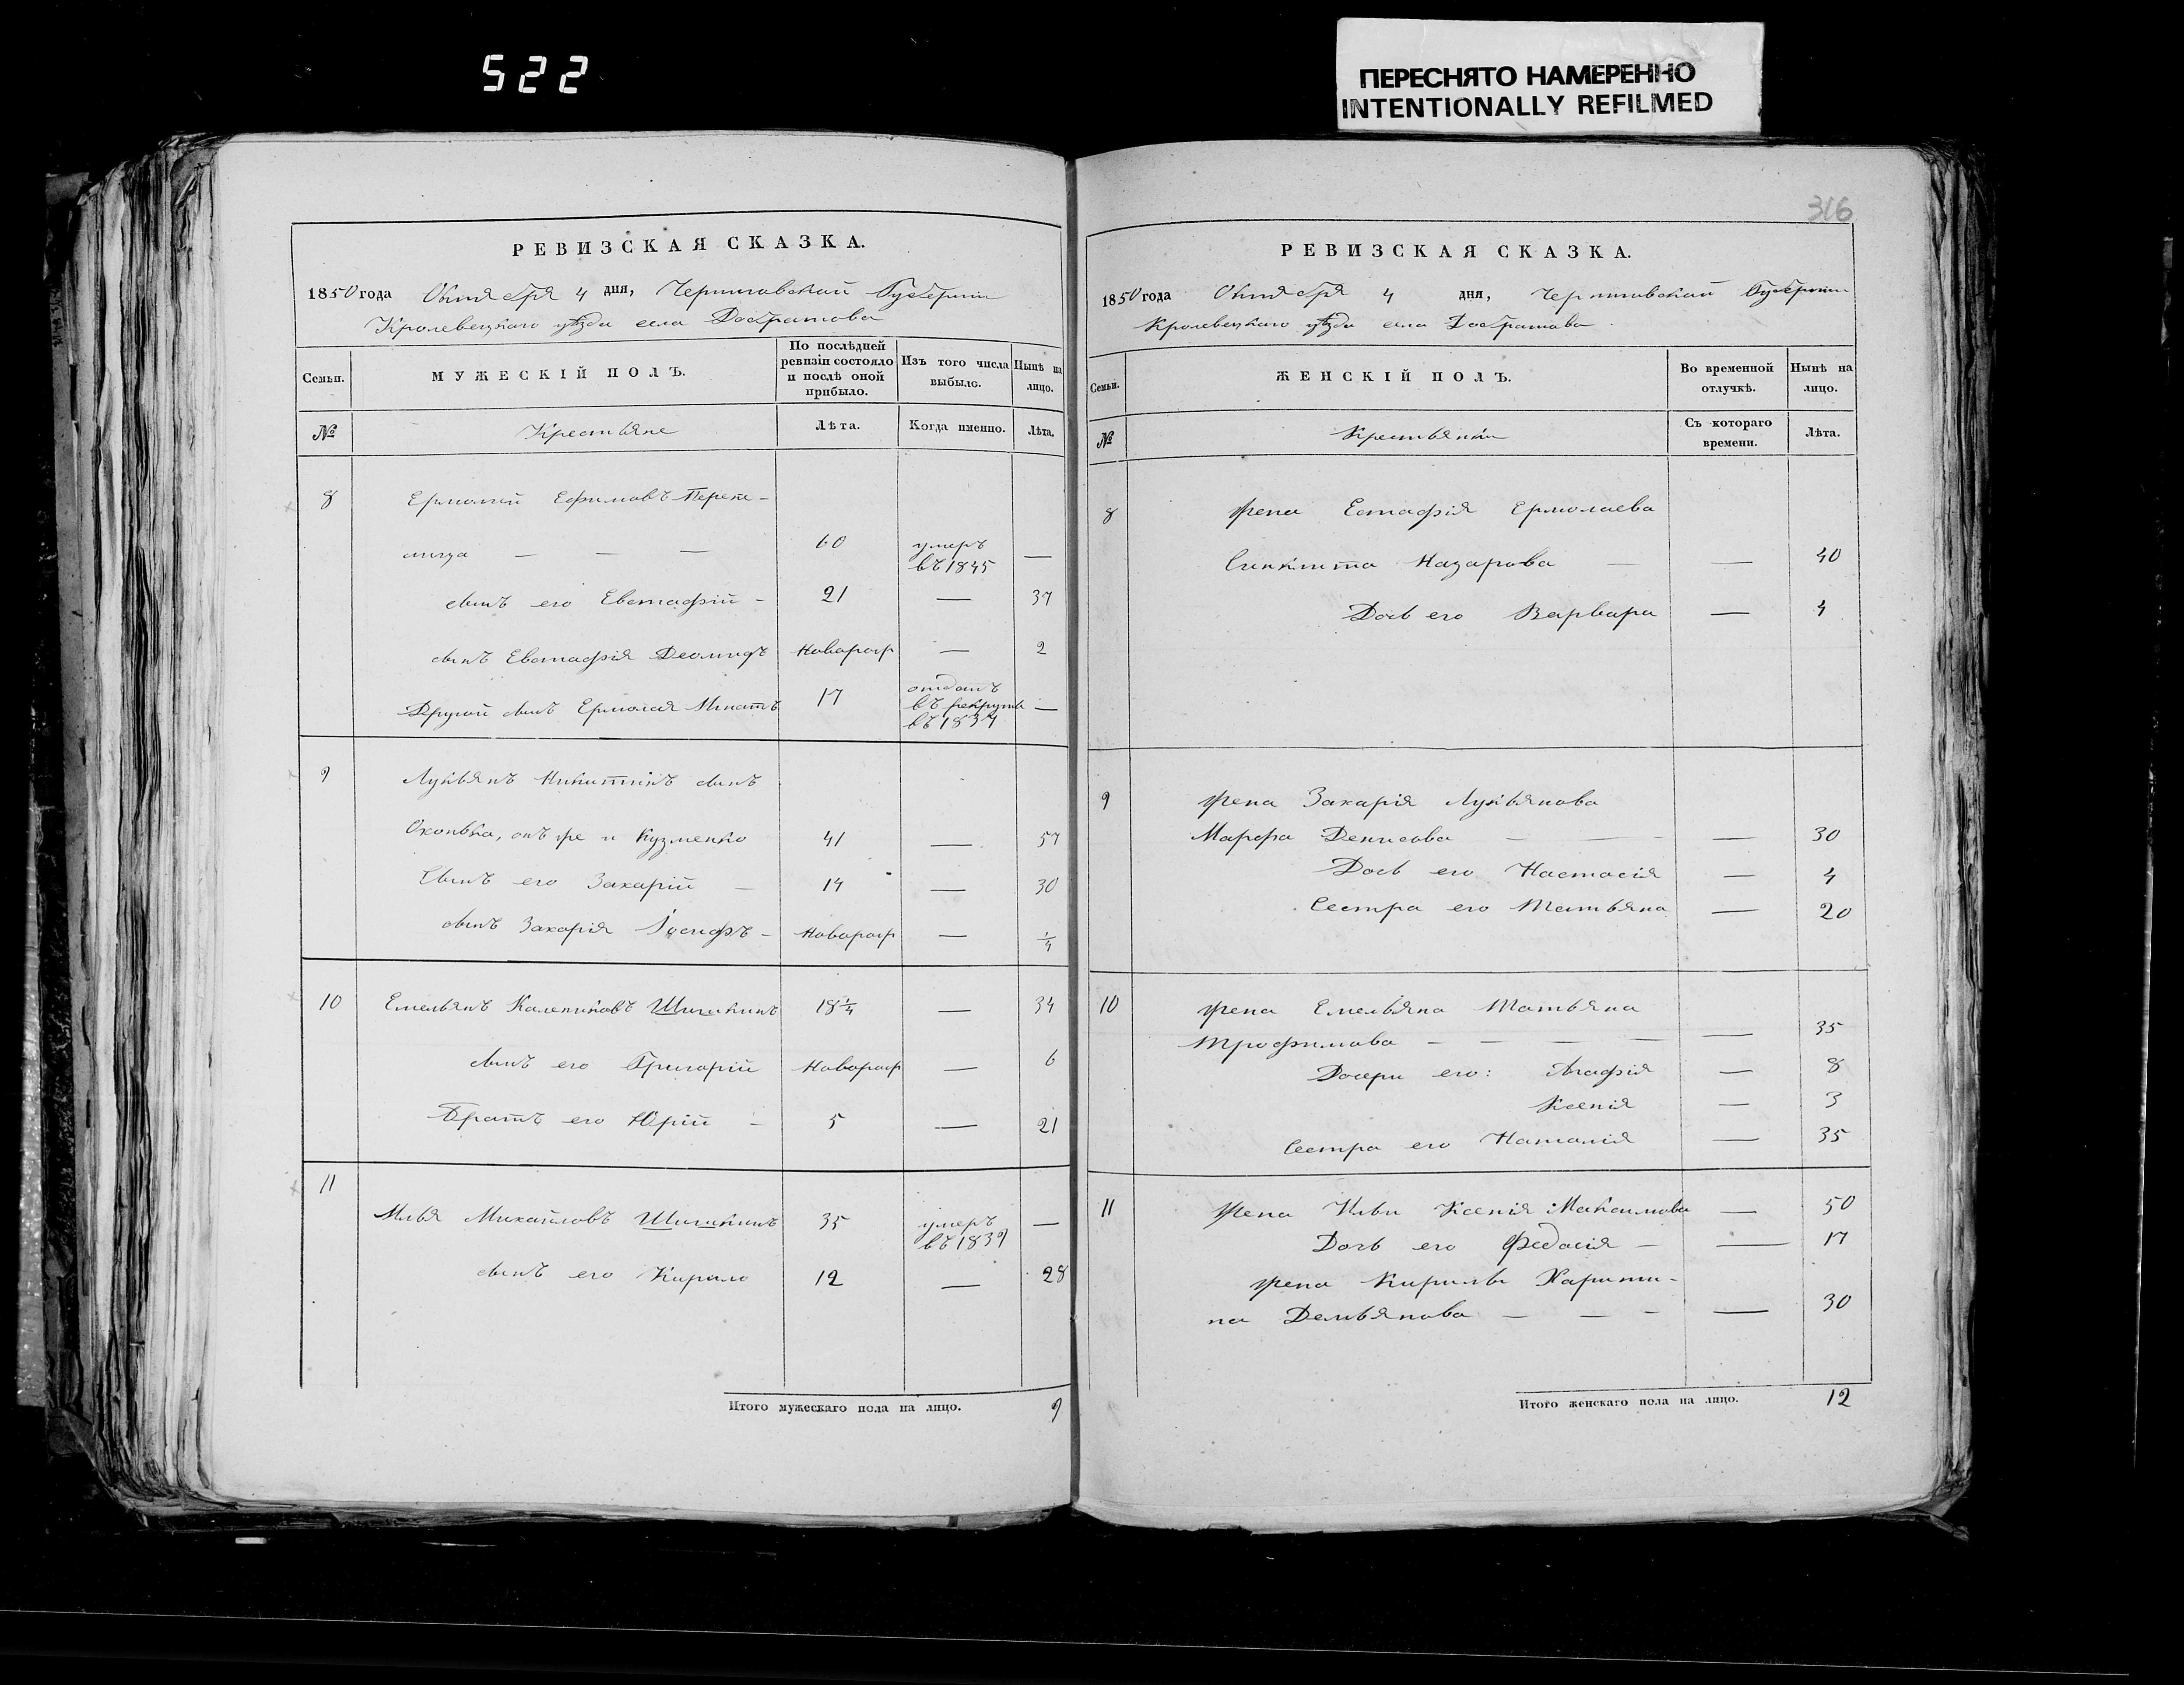 522
ПЕРЕСНЯТО НАМЕРЕННО
INTENTIONALLY REFILMED
РЕВИЗСКАЯ СКАЗКА.
1850 года Октября 4 дня, Черниговской Губернии
Кролевецкаго уѣзда села Добратова
Семьи.
МУЖЕСКІЙ ПОЛЪ.
По послѣдней ревизіи состояло и послѣ оной прибыло.
Изъ того числа выбыло.
Нынѣ на лицо.
№
Крестьяне
Лѣта.
Когда именно.
Лѣта.
8 Ермолай Ефимовъ
60 умеръ въ 1845 —
сынъ его Евстафій - 21 — 37
сынъ Евстафія Деомидъ Новорож — 2
Другой сынъ Ермолая Игнатъ 17 отданъ въ рекруты въ 1834 —
9 Лукьянъ Никитинъ сынъ
онъ же и Кузменко 41 — 57
Сынъ его Захарій — 14 — 30
сынъ Захарія Іосифъ - Новорож — 1/4
10 Емельянъ Калениковъ Шишкинъ 18 1/4 — 34
сынъ его Григорій Новорож — 6
Братъ его Юрій - 5 — 21
11
Илья Михайловъ Шишкинъ 35 умеръ въ 1839 —
сынъ его Кирило 12 — 28
Итого мужескаго пола на лицо. 9
316
РЕВИЗСКАЯ СКАЗКА.
1850 года Октября 4 дня, Черниговской Губернии
Кролевецкаго уѣзда села Добратова.
Семьи.
ЖЕНСКІЙ ПОЛЪ.
Во временной отлучкѣ.
Нынѣ на лицо.
№
Крестьянки
Съ котораго времени.
Лѣта.
8 жена Естафія Ермолаева
Синклита Назарова — — 40
Дочь его Варвара — 4
9 жена Захарія Лукьянова
Марфа Денисова — — — 30
Дочь его Настасія — 4
Сестра его Татьяна — 20
10 жена Емельяна Татьяна
Трофимова — — — — — 35
Дочери его: Агафія — 8
Ксенія — 3
Сестра его Наталія — 35
11 жена Ильи Ксенія Максимова — 50
Дочь его Федосія — — 17
жена Кирилы Харити-
на Демьянова — — - — 30
Итого женскаго пола на лицо. 12